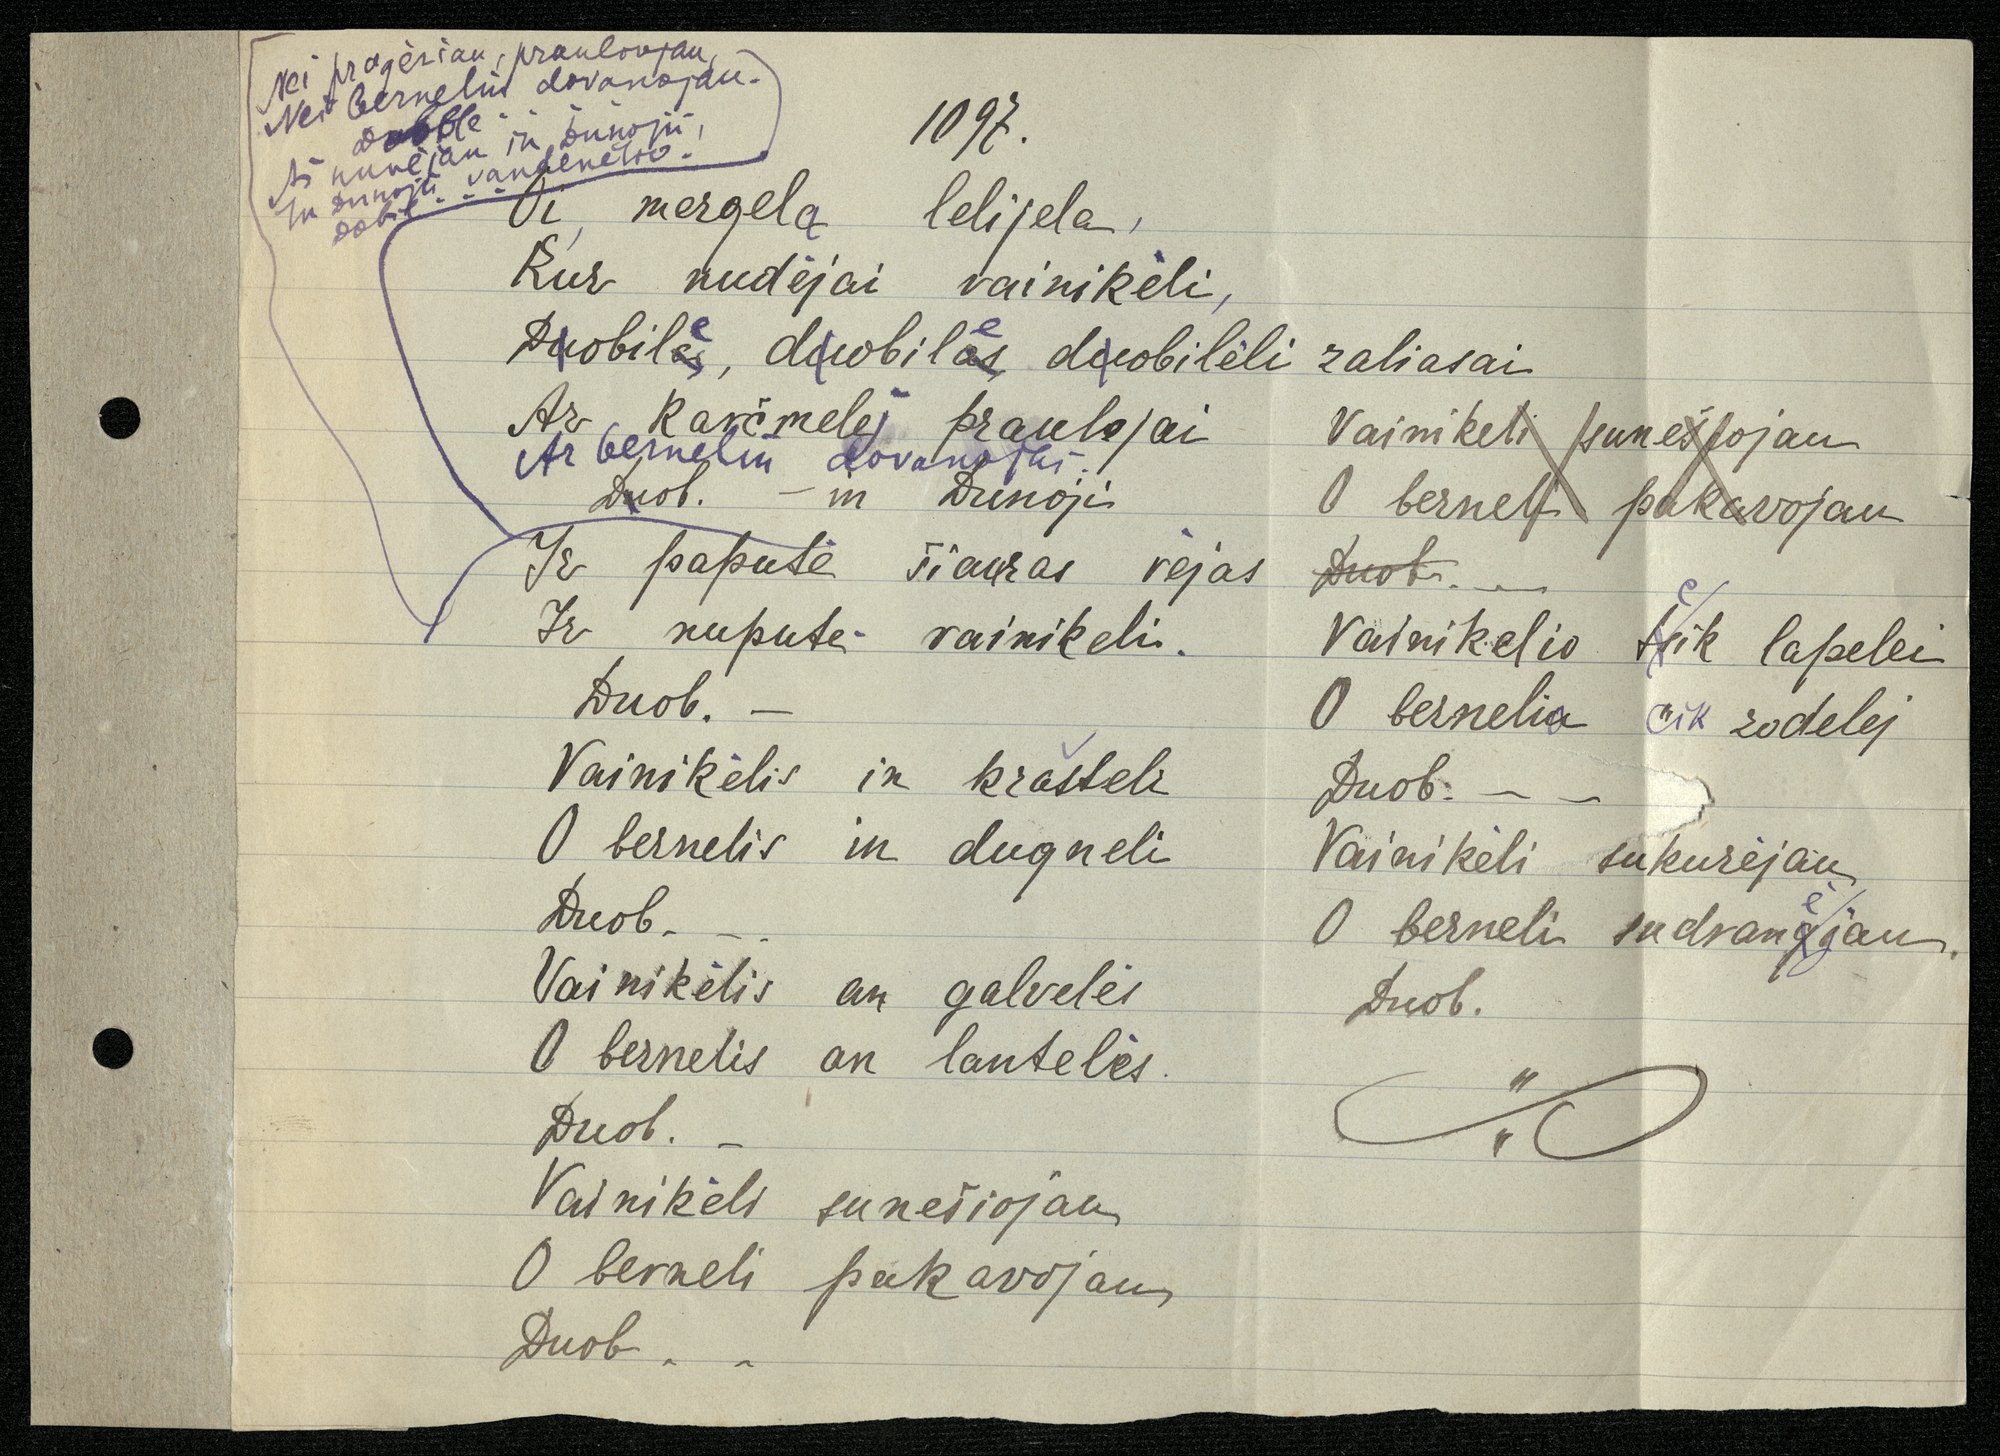 Nei pragėriau, praulovjau,
Nei berneliui dovanojau.
Aš nuvėjau in Dunojų,
In Dunojų vandenėlio.
Dobil. - -
1097.
Oi, mergela lelijela,
Kur nudėjai vainikėli,
Duobile, duobile, duobilėli zaliasai
Ar karčmelej praulojai
Ar berneliu dovanojai.
Duob. – in Dunoji
Ir papute šiauras vėjas
Ir nupute vainikeli.
Duob. –
Vainikėlis in krašteli
O bernelis in dugneli
Duob. - -
Vainikėlis an galvelės
O bernelis an lantelės.
Duob. –
Vainikėli sunešiojau
O berneli pakavojau
Duob. - -
Vainikeli sunešiojau
O berneli pakavojau
Duob. –
Vainikelio čik lapelei
O bernelio čik zodelej
Duob. – –
Vainikėli sukurėjau
O berneli sudvangėjau.
Duob.